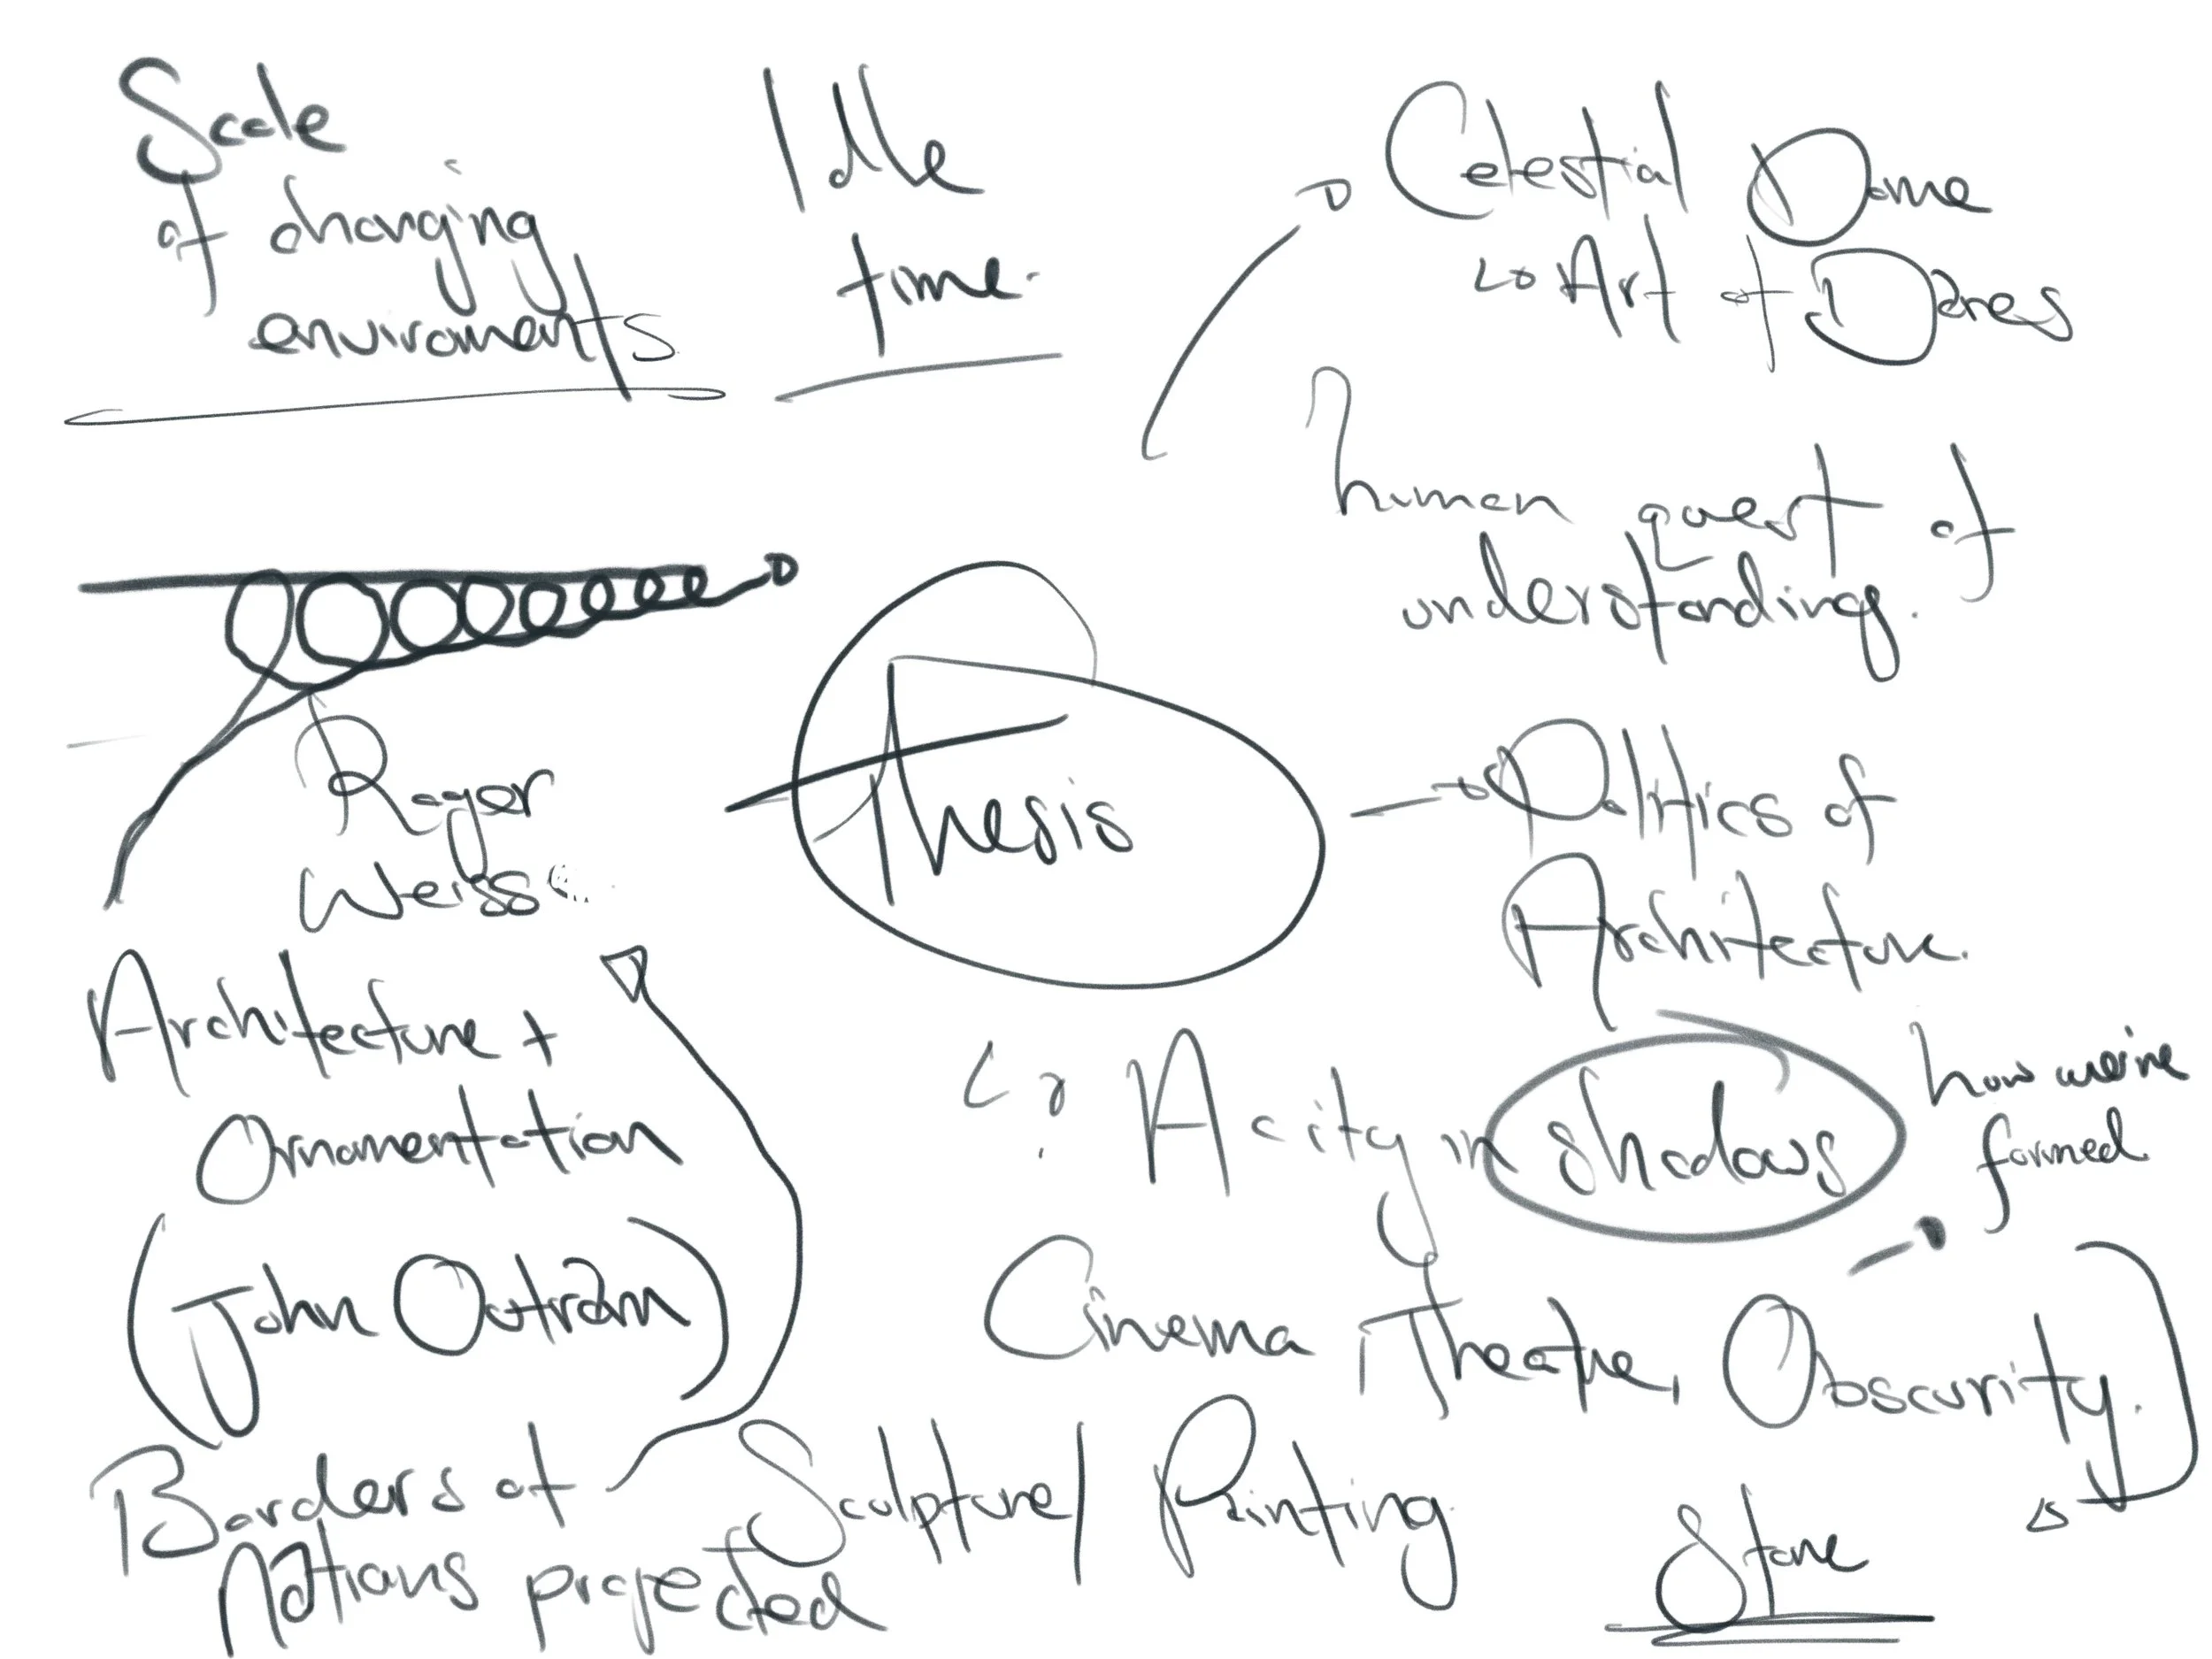 Scale
of changing
enviroments
Idle
time.
Celestial Dome
Art of Domes
human quest of
understanding.
Roger
Weiss
Thesis
Politics of
Architecture.
Architecture +
Ornamentation
(John Outram)
Borders of
Nations projected
? A city in shadows
how we're
formed
Cinema, Theatre, Obscurity.
Sculpture/ Painting
Stone